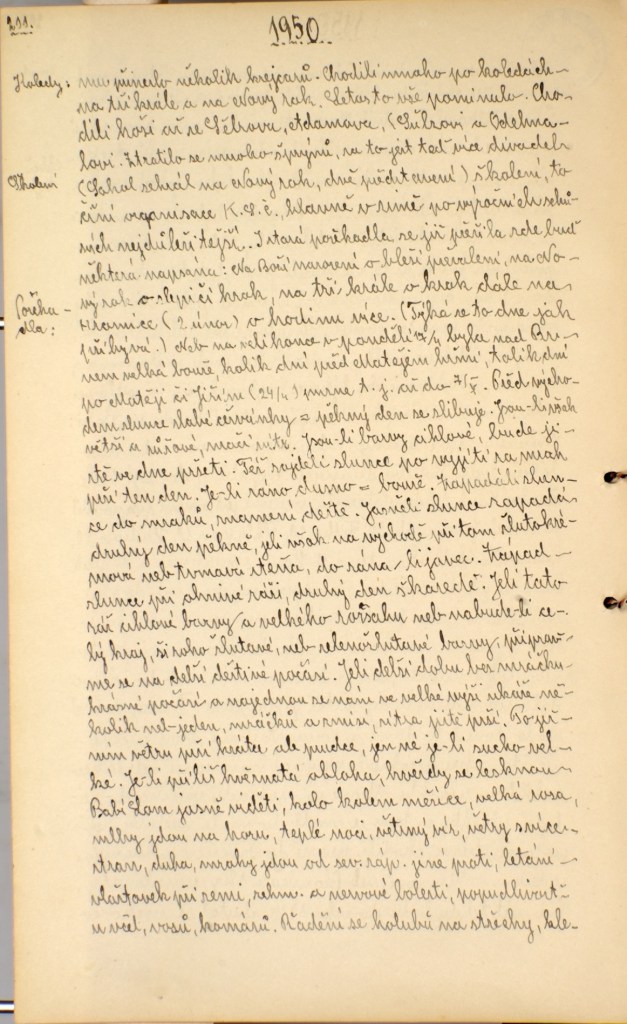 211.
1950
Koledy: mu přineslo několik krejcarů. Chodili mnoho po koledách
na tři krále a na Nový rok. Letos to vše pominulo. Cho-
dili hoši až ze Lelekova, Adamova, (
lovi. Ztratilo se mnoho špryýmů, za to jest teď více divadel
Školení (Sokol sehrál na Nový rok, dvě představení) školení, to
čšní organisace K.S.Č., hlavně v zimě po výročních schů-
zích nejdůležitější. I stará pořekadla se již příčila zde buď
některá napsána: Na Boží narození o bleší převalení, na No-
Pořeka- vý rok o slepičí krok, na tři krále o krok dále na
dla: Hromice (2 únor) o hodinu více. (Týká se to dne jak
přibývá.) Neb na velikonoce v pondělí 17/4 byla nad Br-
nem velká bouře, kolik dní před Matějem hřmí, tolik dní
po Matěji či Jiřím (24/4) mrzne t. j. až do 7/V. Před výcho-
dem slunce slabé červánky = pěkný den se slibuje. Jsou-li však
větší a růžové, značí vítr. Jsou-li barvy cihlové, bude ji-
stě ve dne pršeti. Též zajde-li slunce po vyjití za mrak
prší ten den. Je-li ráno dusno = bouře. Zapadá-li slun-
ce do mraků, znamení deště. Jasně-li slunce zapadá
druhý den pěkně, je-li však na východě při tom žlutokré-
mová neb tvmavá stěna, do rána lijavec. Západ
slunce při ohnivé záři, druhý den škaredě. Je-li tato
zář cihlové barvy a velkého rozsahu neb nabude-li ce-
lý kraj, široko žlutavé, neb zelenožlutavé barvy, připrav-
me se na delší deštivé počasí. Je-li delší dobu bez mráčku
krásné počasí a najednou se nám ve velké výši ukáže ně-
kolik neb jeden, mráčků a zmizí, zítra jistě prší. Po již-
ním větru prší krátce ale prudce, jen né je-li sucho vel-
ké. Je-li příliš hvězdnatá obloha, hvězdy se lesknou
Babí Lom jasně viděti, kolo kolem měsíce, velká rosa,
mlhy jdou na horu, teplé noci, větrný vír, větry s více
stran, duha, mraky jdou od sev. záp. jiné proti, letání
vlaštovek při zemi, rehm. a nervové bolesti, popudlivost
u včel, vosů, komárů. Řadění se holubů na střechy, kle-